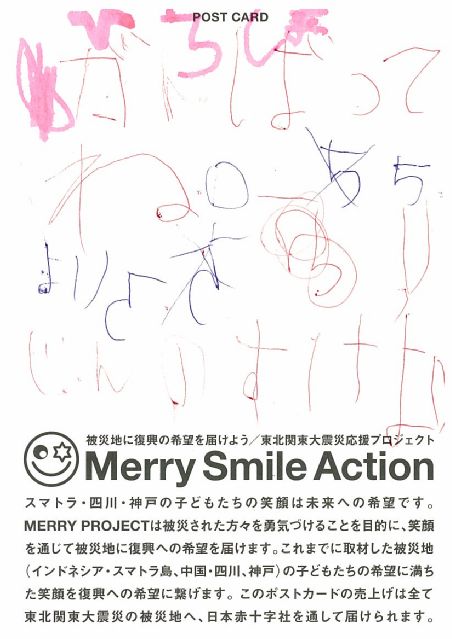 POST CARD
がんばって
ね。
じんのすけ
被災地に復興の希望を届けよう／東北関東大震災応援プロジェクト
Merry Smile Action
スマトラ・四川・神戸の子どもたちの笑顔は未来への希望です。
MERRY PROJECTは被災された方々を勇気づけることを目的に、笑顔
を通じて被災地に復興への希望を届けます。これまでに取材した被災地
（インドネシア・スマトラ島、中国・四川、神戸）の子どもたちの希望に満ち
た笑顔を復興への希望に繋げます。このポストカードの売上げは全て
東北関東大震災の被災地へ、日本赤十字社を通して届けられます。